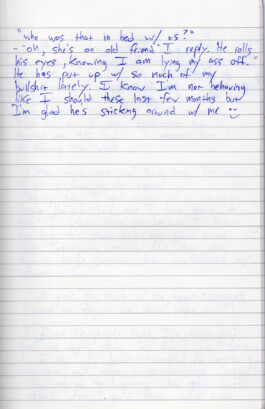 "who was that in bed w/ us?"
- "oh, she's an old friend" I reply. He rolls
his eyes, knowing I am lying my ass off."
He has put up w/ so much of my
bullshit lately. I know I'm not behaving
like I should these last few months but
I'm glad he's sticking around w/ me :)